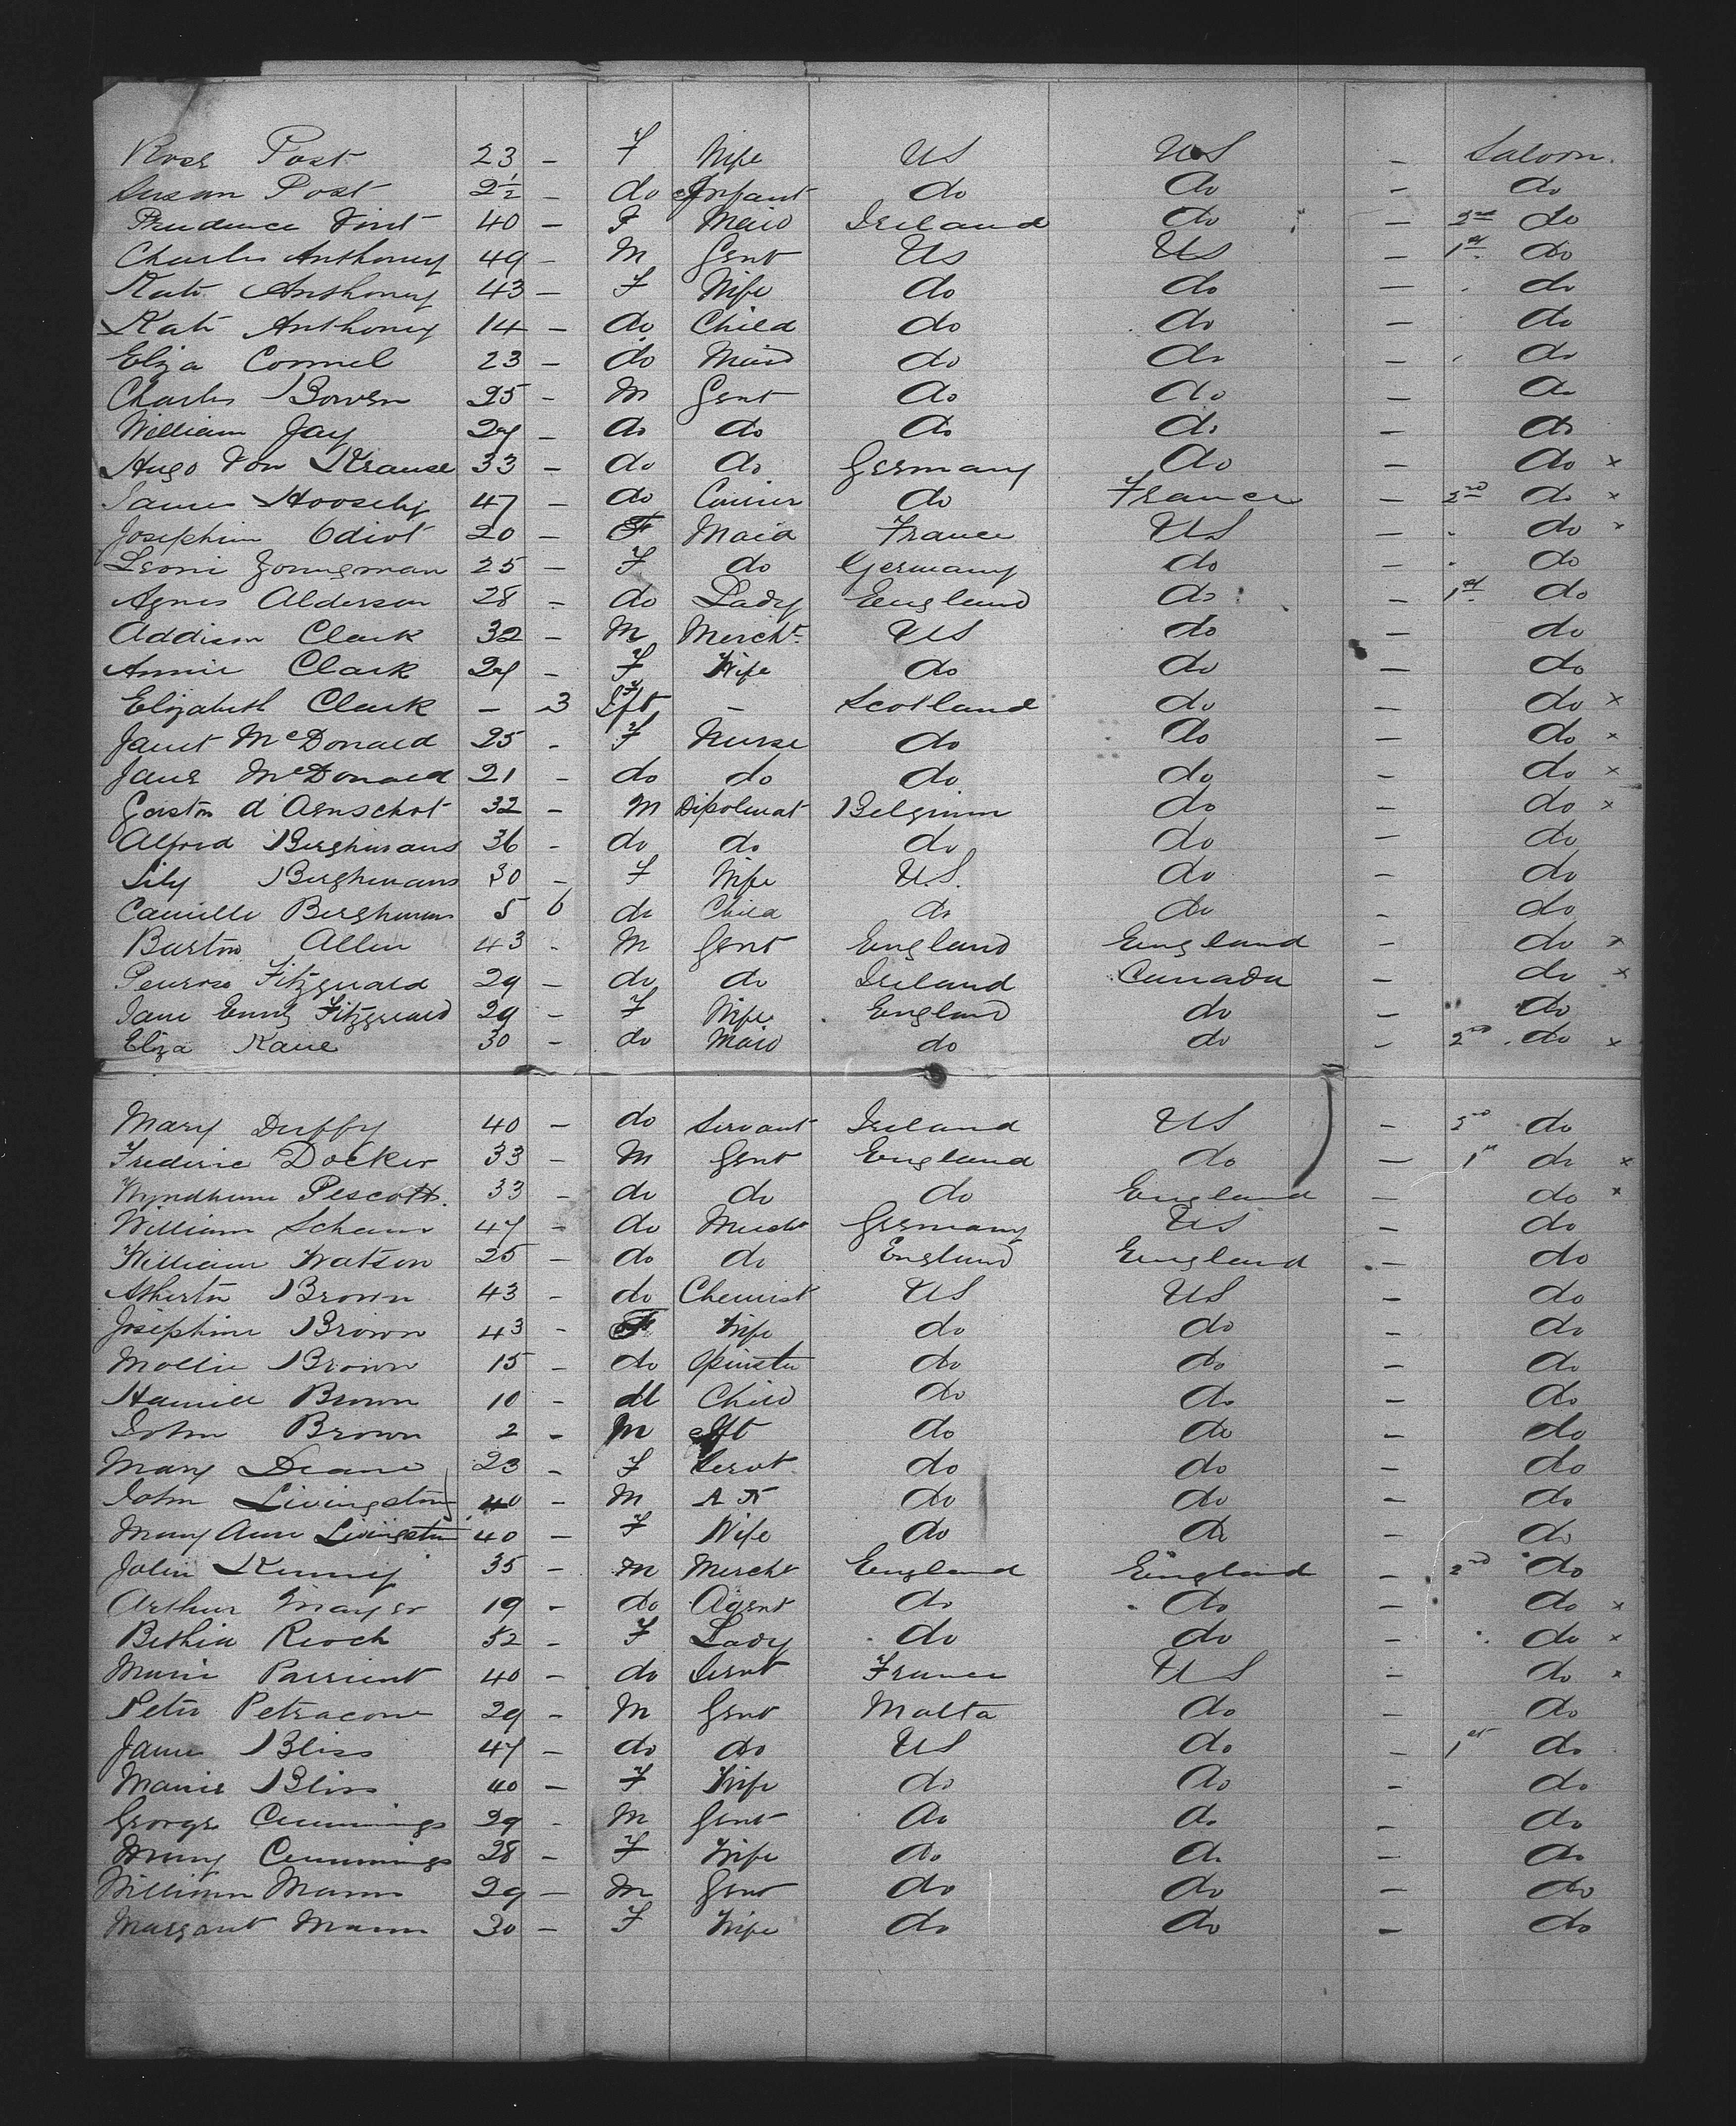 Rose Post 23 – F Wife US US – Saloon.
Susan Post 2½ – do Infant do do – do
Prudence Vint 40 – F Maid Ireland do – 2nd do
Charles Anthony 49 – M Gent US US – 1st do
Kate Anthony 43 – F Wife do do – do
Kate Anthony 14 – do Child do do – do
Eliza Connel 23 – do Maid do do – do
Charles Bowen 25 – M Gent do do – do
William Jay 27 – do do do do – do
Hugo Von Krause 33 – do do Germany do – do x
James 47 – do Courier do France – 2nd do x
Josephine Odiot 20 – F Maid France US – do x
Leoni Joungman 25 – F do Germany do – do
Agnes Alderson 28 – do Lady England do – 1st do
Addison Clark 32 – M Mercht US do – do
Annie Clark 27 – F Wife do do – do
Elizabeth Clark – 3 F Ift – Scotland do – do x
Janet McDonald 25 – F Nurse do do – do x
Jane McDonald 21 – do do do do – do x
Gaston d'Aenschot 32 – M Dipolmat Belgium do – do x
Alfred Berghmans 36 – do do do do – do
Lily Berghmans 30 – F Wife U.S. do – do
Camille Berghmans 5 6 do Child do do – do
Burton Allen 43 – M Gent England England – do x
Penrose Fitzgerald 29 – do do Ireland Canada – do x
Jane Emily Fitzgerald 29 – F Wife England do – do
Eliza Kane 30 – do Maid do do – 2nd do x
Mary Duffy 40 – do Servant Ireland US – 2nd do
Frederic Docker 33 – M Gent England do – 1st do x
Wyndham Pescott. 33 – do do do England – do x
William Schaus 47 – do Mercht Germany US – do
William Watson 25 – do do England England – do
Atherton Brown 43 – do Chemist US US – do
Josephine Brown 43 – F Wife do do – do
Mollie Brown 15 – do Spinster do do – do
Brown 10 – do Child do do – do
John Brown 2 – M Ift do do – do
Mary Deane 23 – F Servt do do – do
John Livingston 40 – M do do – do
Mary Ann Livingston 40 – F Wife do do – do
John Kenny 35 – M Mercht England England – 2nd do
Arthur Mayer 19 – do Agent do do – do x
Bethia Reoch 52 – F Lady do do – do x
Marie Parrient 40 – do Servt France US – do x
Peter Petracone 29 – M Gent Malta do – do
James Bliss 47 – do do US do – 1st do
Marie Bliss 40 – F Wife do do – do
George Cummings 29 – M Gent do do – do
Mary Cummings 28 – F Wife do do – do
William Mann 29 – M Gent do do – do
Margaret Mann 30 – F Wife do do – do